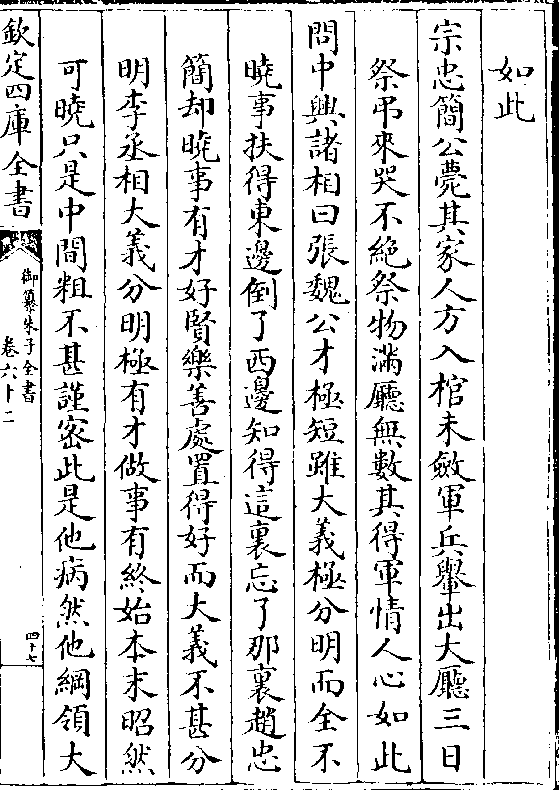 如此
宗忠簡公薨其家人方入棺未斂軍兵舉出大廳三日
祭弔來哭不絶祭物滿廳無數其得軍情人心如此
問中興諸相曰張魏公才極短雖大義極分明而全不
曉事扶得東邊倒了西邊知得這裏忘了那裏趙忠
簡却曉事有才好賢樂善處置得好而大義不甚分
明李丞相大義分明極有才做事有終始本末昭然
可曉只是中間粗不甚謹密此是他病然他綱領大
欽定四庫全書
御纂朱子全書
卷六十二
四十七